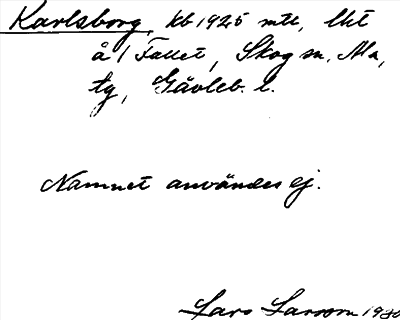 Karlsborg, kb 1925 mtl, lht
å 1 Fallet, Skog sn, Ala,
tg, Gävleb. l.
Namnet användes ej.
Lars Larsson 1980